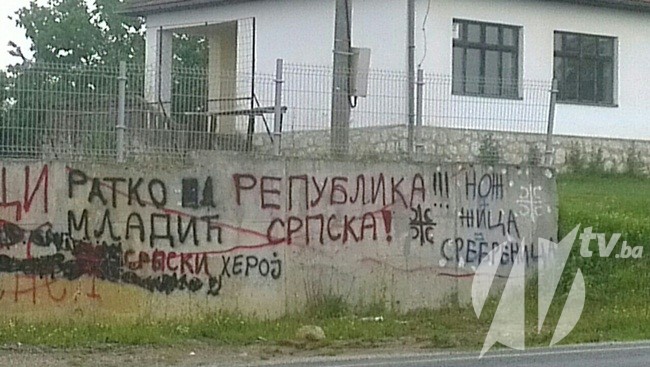 ЦИ РАТКО РЕПУБЛИКА!!! НОЖ
МЛАДИЋ СРПСКА! ЖИЦА
СРПСКИ ХЕРОЈ СРЕБРЕНИЦА
Ntv.ba